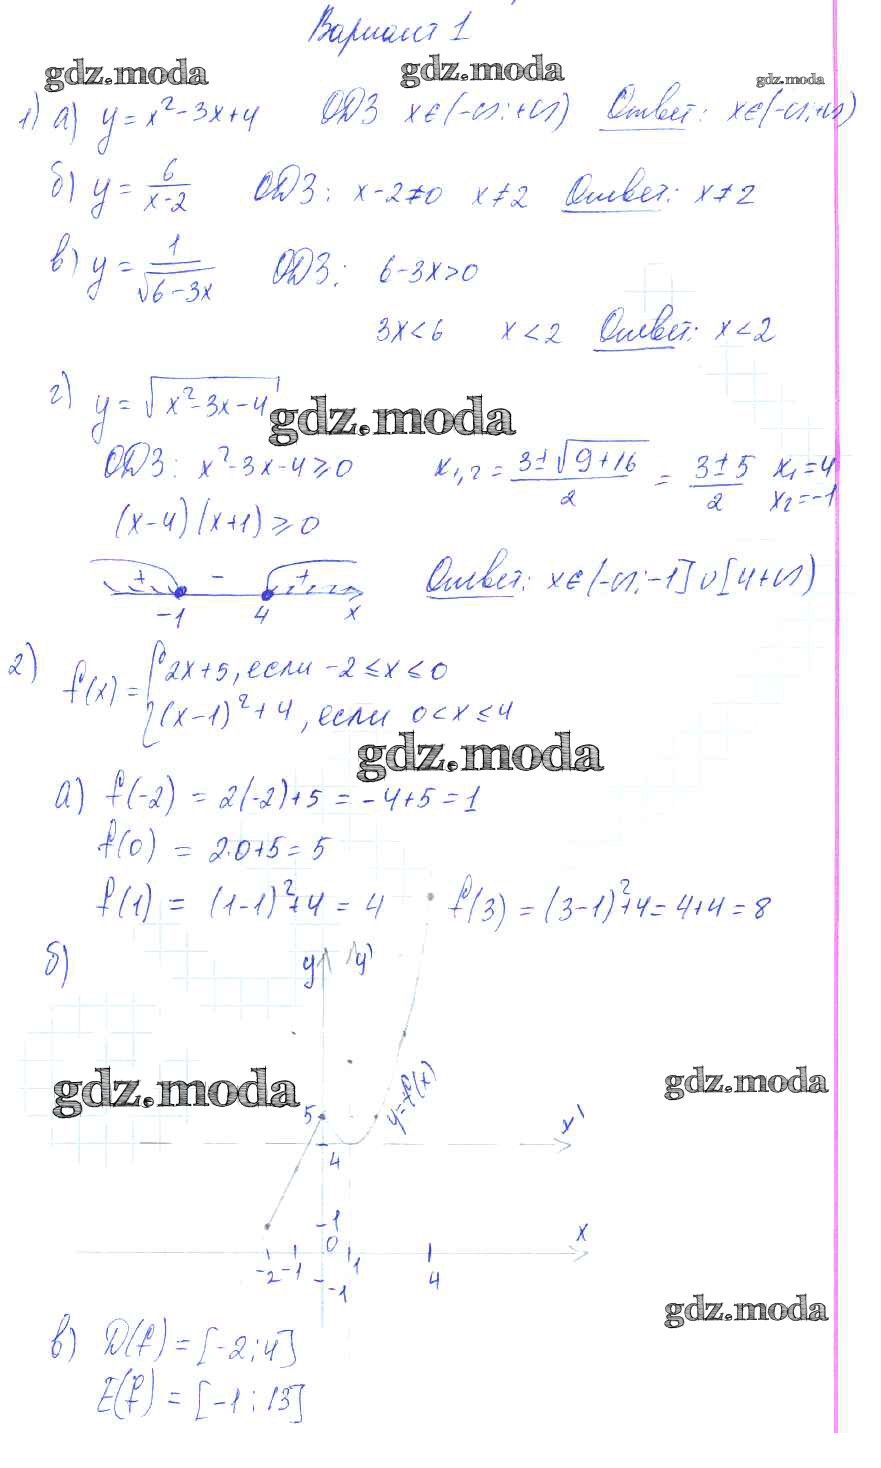 Вариант 1
gdz.moda gdz.moda gdz.moda
1) а) y = x² - 3x + 4 ОДЗ x ∈ (-∞; +∞) Ответ: x ∈ (-∞; +∞)
б) y = 6/(x-2) ОДЗ: x - 2 ≠ 0 x ≠ 2 Ответ: x ≠ 2
в) y = 1/√(6-3x) ОДЗ: 6 - 3x > 0
3x < 6 x < 2 Ответ: x < 2
г) y = √(x² - 3x - 4) gdz.moda
ОДЗ: x² - 3x - 4 ≥ 0 x₁,₂ = (3 ± √(9+16))/2 = (3 ± 5)/2 x₁ = 4 x₂ = -1
(x-4)(x+1) ≥ 0
+ - +
-1 4 x
Ответ: x ∈ (-∞; -1] ∪ [4 +∞)
2) f(x) = { 2x + 5, если -2 ≤ x ≤ 0
(x-1)² + 4, если 0 < x ≤ 4
gdz.moda
а) f(-2) = 2(-2) + 5 = -4 + 5 = 1
f(0) = 2·0 + 5 = 5
f(1) = (1-1)² + 4 = 4 f(3) = (3-1)² + 4 = 4 + 4 = 8
б) y y'
gdz.moda gdz.moda
y = f(x)
5 x'
4
1
0 x
-2 -1 1 4
-1
gdz.moda
в) D(f) = [-2; 4]
E(f) = [-1; 13]